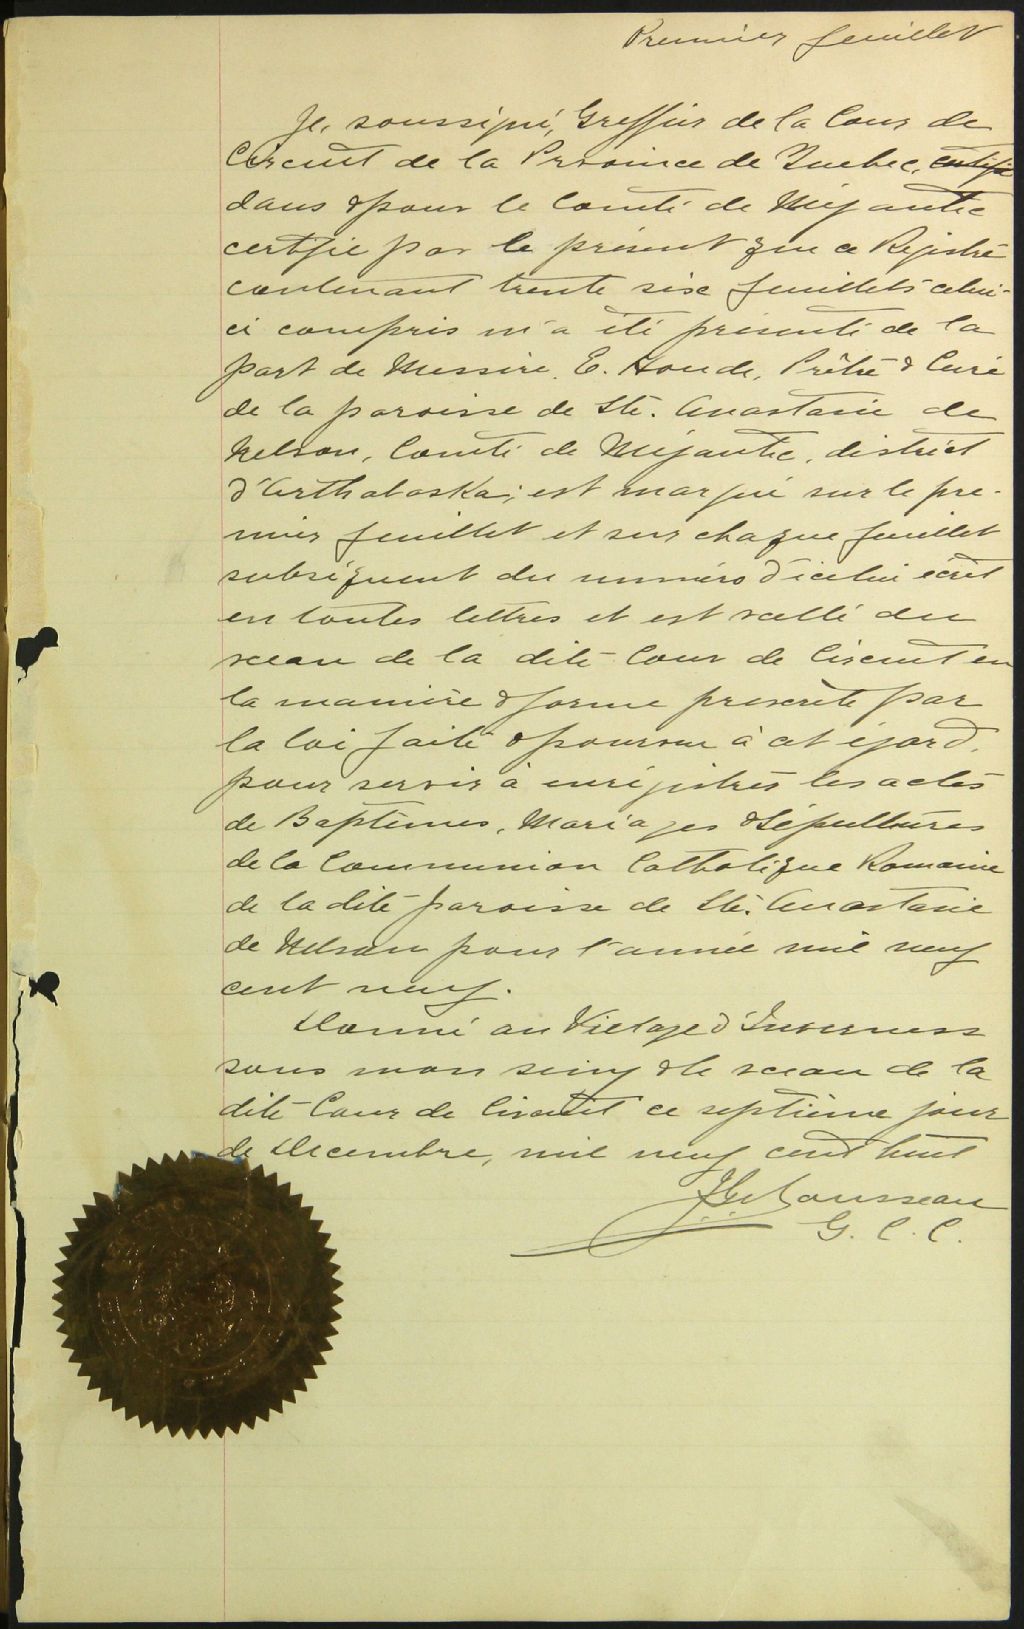 Premier feuillet
Je, soussigné, Greffier de la Cour de
Circuit de la Province de Quebec, certifie
dans & pour le Comté de Mégantic
certifie par le présent que ce Registre
contenant trente six feuillets celui-
ci compris m'a été présenté de la
part de Messire E. Houde, Prêtre & Curé
de la paroisse de Ste. Anastasie de
Nelson, Comté de Mégantic, district
d'Arthabaska; est marqué sur le pre-
mier feuillet et sur chaque feuillet
subséquent du numéro d'icelui écrit
en toutes lettres et est scellé du
sceau de la dite Cour de Circuit en
la manière & forme prescrite par
la loi faite & pourvue à cet égard,
pour servir à enrégistrer les actes
de Baptêmes, Mariages & Sépultures
de la Communion Catholique Romaine
de la dite paroisse de Ste. Anastasie
de Nelson pour l'année mil neuf
cent neuf.
Donné au Village d'Inverness
sous mon seing & le sceau de la
dite Cour de Circuit ce septième jour
de Decembre, mil neuf cent huit
Rousseau
G. C. C.